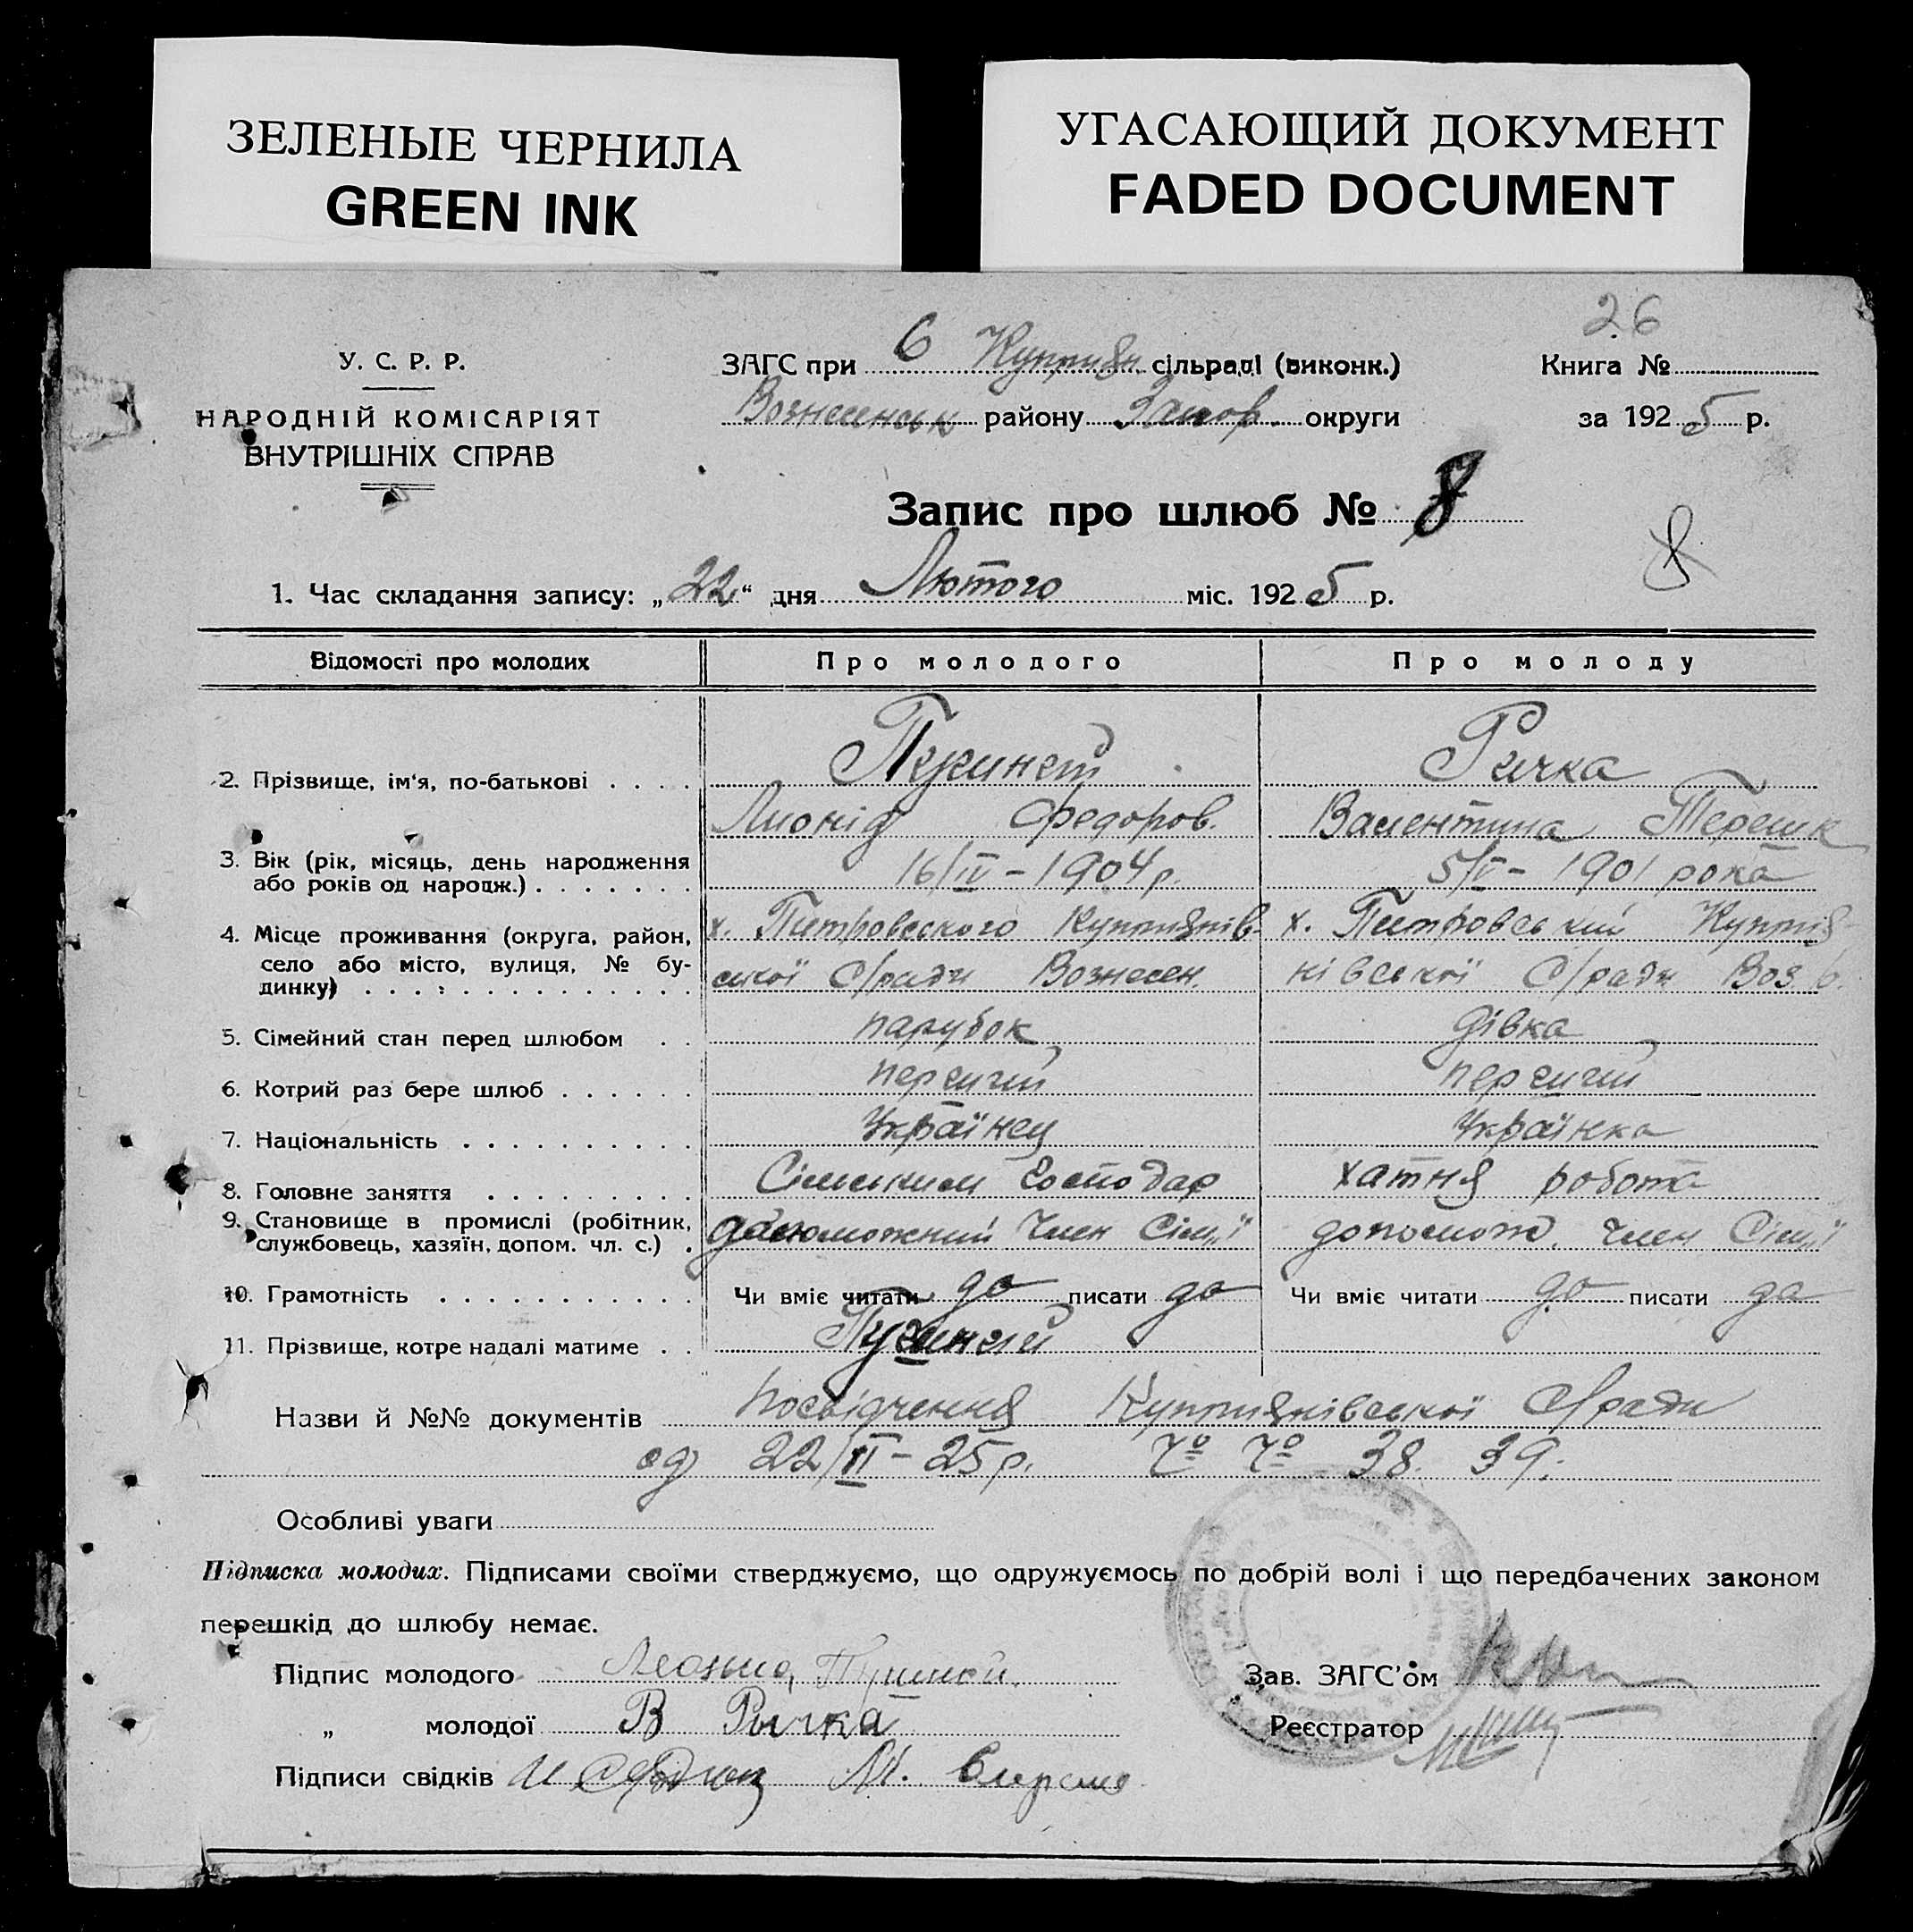 ЗЕЛЕНЫЕ ЧЕРНИЛА
GREEN INK
УГАСАЮЩИЙ ДОКУМЕНТ
FADED DOCUMENT
26
У. С. Р. Р.
НАРОДНІЙ КОМІСАРІЯТ
ВНУТРІШНІХ СПРАВ
ЗАГС при 6 Куприян сільраді (виконк.)
Вознесенськ району Запор. округи
Книга №
за 1925 р.
Запис про шлюб № 8
8
1. Час складання запису: „22“ дня Лютого міс. 1925 р.
Відомості про молодих Про молодого Про молоду
2. Прізвище, ім'я, по-батькові . . . . Ричка
Лионід Федоров. Валентина Терешк
3. Вік (рік, місяць, день народження
або років од народж.) . . . . . . . 16/IV – 1904 р. 5/V – 1901 рока
4. Місце проживання (округа, район, х. Питровского Куприянів- х. Питровський Куприя-
село або місто, вулиця, № бу-
динку) . . . . . . . . . . . . ської С/ради Вознесен. нівської С/ради Воз.
5. Сімейний стан перед шлюбом . . парубок дівка
6. Котрий раз бере шлюб . . . . . . перший перший
7. Національність . . . . . . . . . . Українец Українка
8. Головне заняття . . . . . . . . . Господар хатня робота
9. Становище в промислі (робітник,
службовець, хазяїн, допом. чл. с.) . Член Сім„ї допомож. Член Сім„ї
10. Грамотність . . . . . . . . . . . Чи вміє читати да писати да Чи вміє читати да писати да
11. Прізвище, котре надалі матиме . .
Назви й №№ документів Посвідчення Куприянівської С/ради
од 22/II – 25 р. № № 38. 39.
Особливі уваги
Підписка молодих. Підписами своїми стверджуємо, що одружуємось по добрій волі і що передбачених законом
перешкід до шлюбу немає.
Підпис молодого
„ молодої В Рычка
Підписи свідків
Зав. ЗАГС'ом
Реєстратор